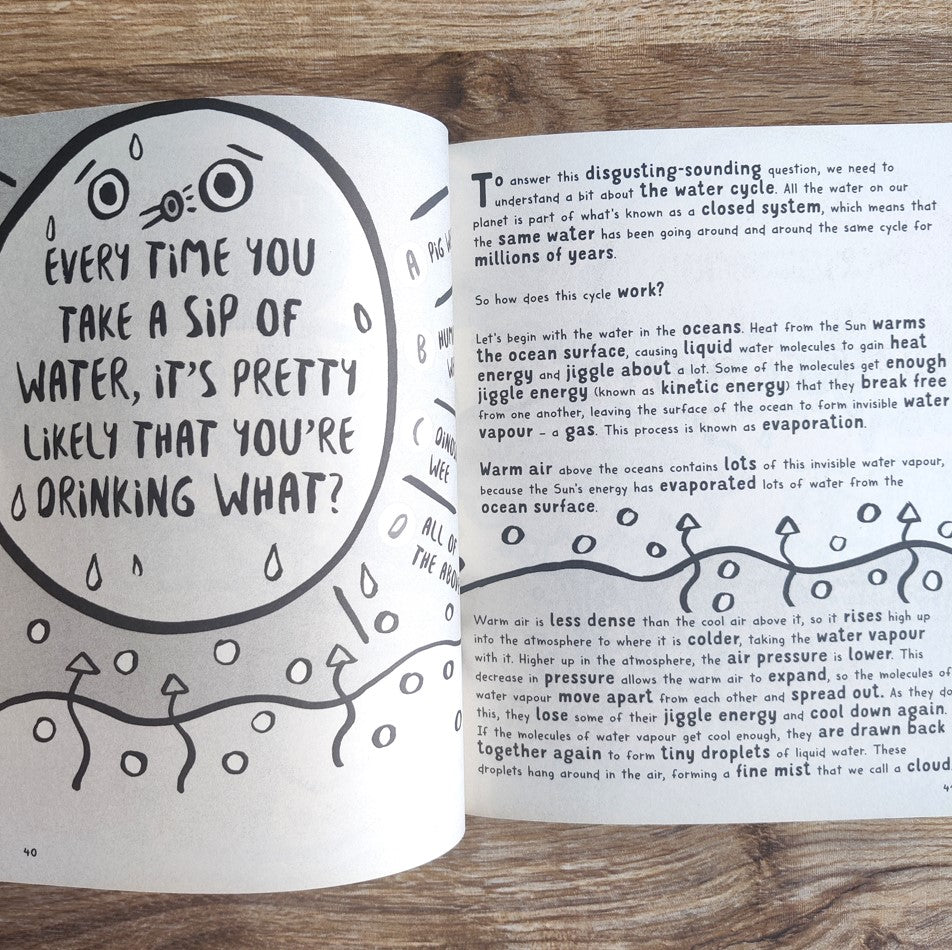 EVERY TIME YOU
TAKE A SIP OF
WATER, IT'S PRETTY
LIKELY THAT YOU'RE
DRINKING WHAT?
A PIG
B
C
WEE
D ALL OF
THE ABOVE
40
To answer this disgusting-sounding question, we need to
understand a bit about the water cycle. All the water on our
planet is part of what's known as a closed system, which means that
the same water has been going around and around the same cycle for
millions of years.
So how does this cycle work?
Let's begin with the water in the oceans. Heat from the Sun warms
the ocean surface, causing liquid water molecules to gain heat
energy and jiggle about a lot. Some of the molecules get enough
jiggle energy (known as kinetic energy) that they break free
from one another, leaving the surface of the ocean to form invisible water
vapour – a gas. This process is known as evaporation.
Warm air above the oceans contains lots of this invisible water vapour,
because the Sun's energy has evaporated lots of water from the
ocean surface.
Warm air is less dense than the cool air above it, so it rises high up
into the atmosphere to where it is colder, taking the water vapour
with it. Higher up in the atmosphere, the air pressure is lower. This
decrease in pressure allows the warm air to expand, so the molecules of
water vapour move apart from each other and spread out. As they do
this, they lose some of their jiggle energy and cool down again.
If the molecules of water vapour get cool enough, they are drawn back
together again to form tiny droplets of liquid water. These
droplets hang around in the air, forming a fine mist that we call a cloud.